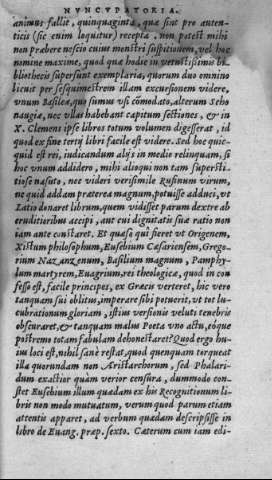 NVNCVPATORIA.
animus fallit, quinquaginta, quæ sint pro auten-
ticis (sic enim loquitur) recepta, non potest mihi
non præbere nescio cuius monstri suspitionem, vel hoc
nomine maxime, quod quæ hodie in vetustissimis bi
bliothecis supersunt exemplaria, quorum duo omnino
licuit per sesquimestrem illam excursionem videre,
vnum Basileæ, quo sumus vsi cōmodato, alterum Scho
naugiæ, nec vllas habebant capitum sectiones, & in
X. Clemens ipse libros totum volumen digesserat, id
quod ex fine tertij libri facile est videre. Sed hoc quic-
quid est rei, iudicandum alijs in medio relinquam, si
hoc vnum addidero, mihi alioqui non tam supersti-
tiose nasuto, nec videri verisimile Rufinum virum,
ne quid addam præterea magnum, potuisse adduci, vt
Latio donaret librum, quem vidisset parum dextre ab
eruditioribus accipi, aut cui dignitatis suæ ratio non
iam ante constaret. Et quasi qui sciret vt Origenem,
Xistum philosophum, Eusebium Cæsariensem, Grego
rium Nazanzenum, Basilium magnum, Pamphy
lum martyrem, Euagrium, rei theologicæ, quod in con
fesso est, facile principes, ex Græcis verteret, hic vero
tanquam sui oblitus, imperare sibi potuerit, vt tot lu
cubrationum gloriam, istius versionis veluti tenebris
obscuraret, & tanquam malus Poeta vno actu, eóque
postremo totam fabulam dehonestaret? Quod ergo hu
ius loci est, nihil sanè restat, quod quenquam torqueat
illa quorundam non Aristarchorum, sed Phalari-
dum exactior quàm verior censura, dummodo con-
stet Eusebium illum quædam ex his Recognitionum li
bris non modo mutuatum, verum quod parum etiam
attentis apparet, ad verbum quædam descripsisse in
libro de Euang. præp. sexto. Cæterum cum iam edi-